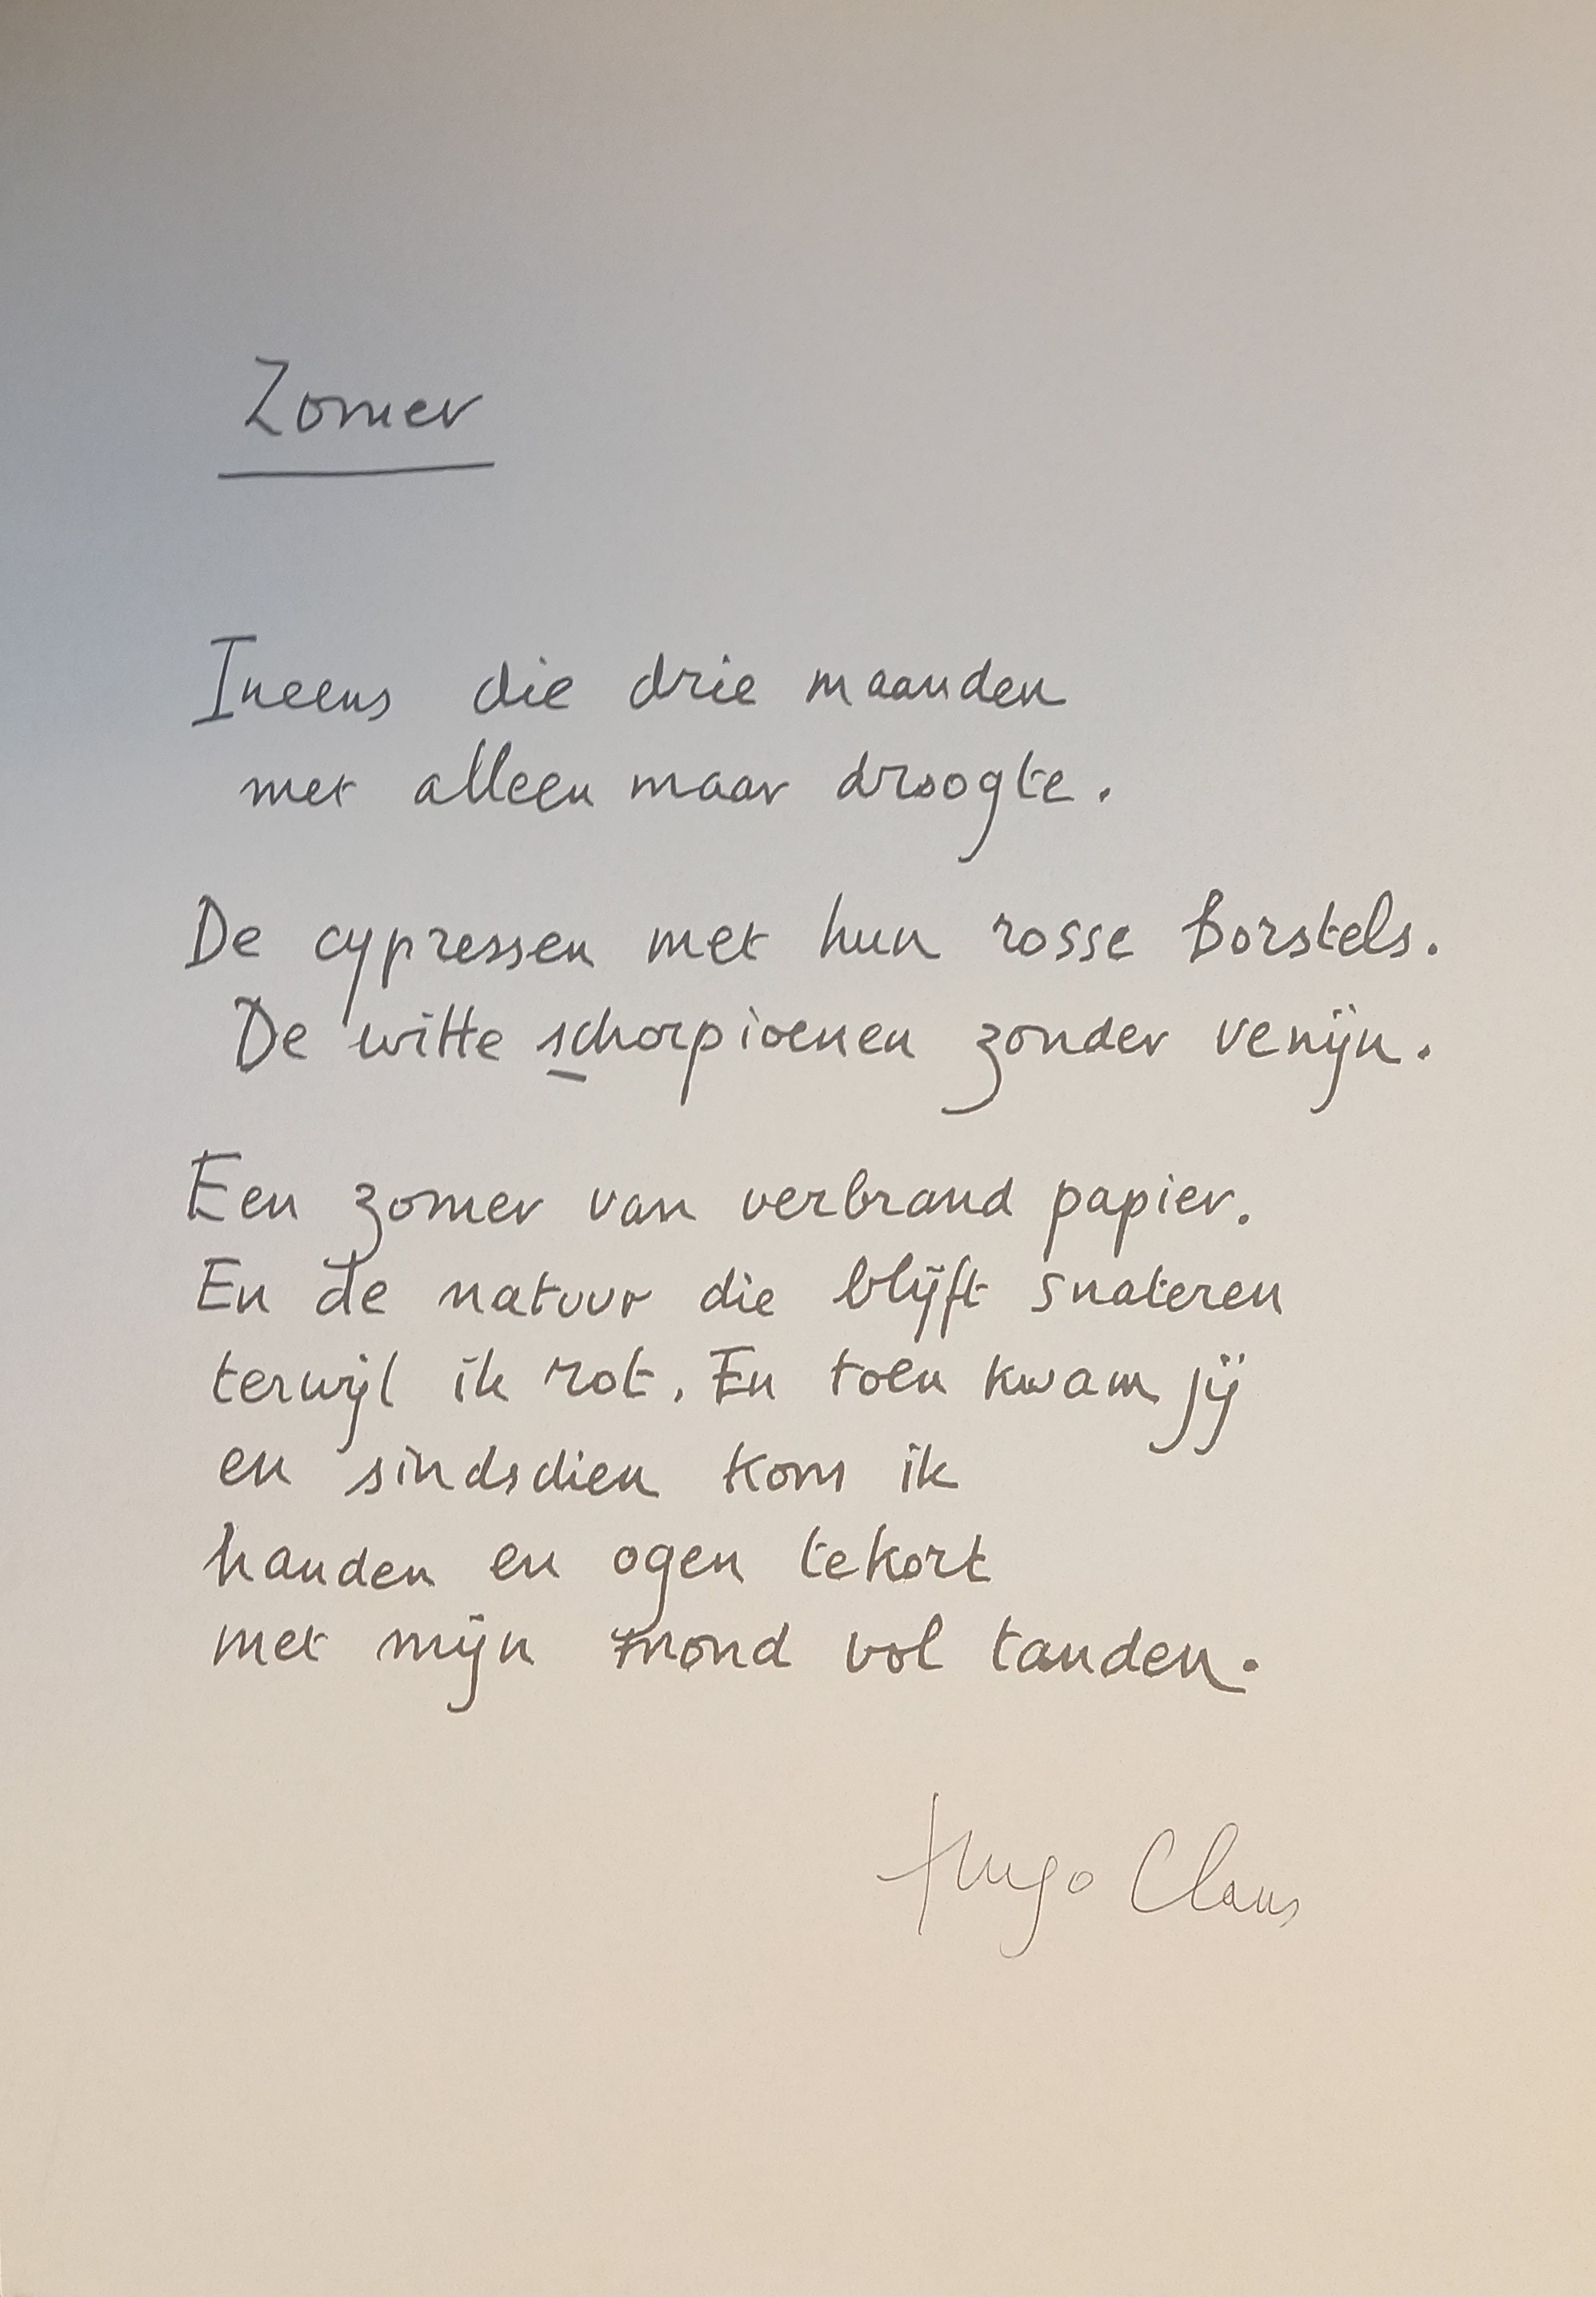 Zomer
Ineens die drie maanden
met alleen maar droogte.
De cypressen met hun rosse borstels.
De witte schorpioenen zonder venijn.
Een zomer van verbrand papier.
En de natuur die blijft snateren
terwijl ik rot. En toen kwam jij
en sindsdien kom ik
handen en ogen tekort
met mijn mond vol tanden.
Hugo Claus